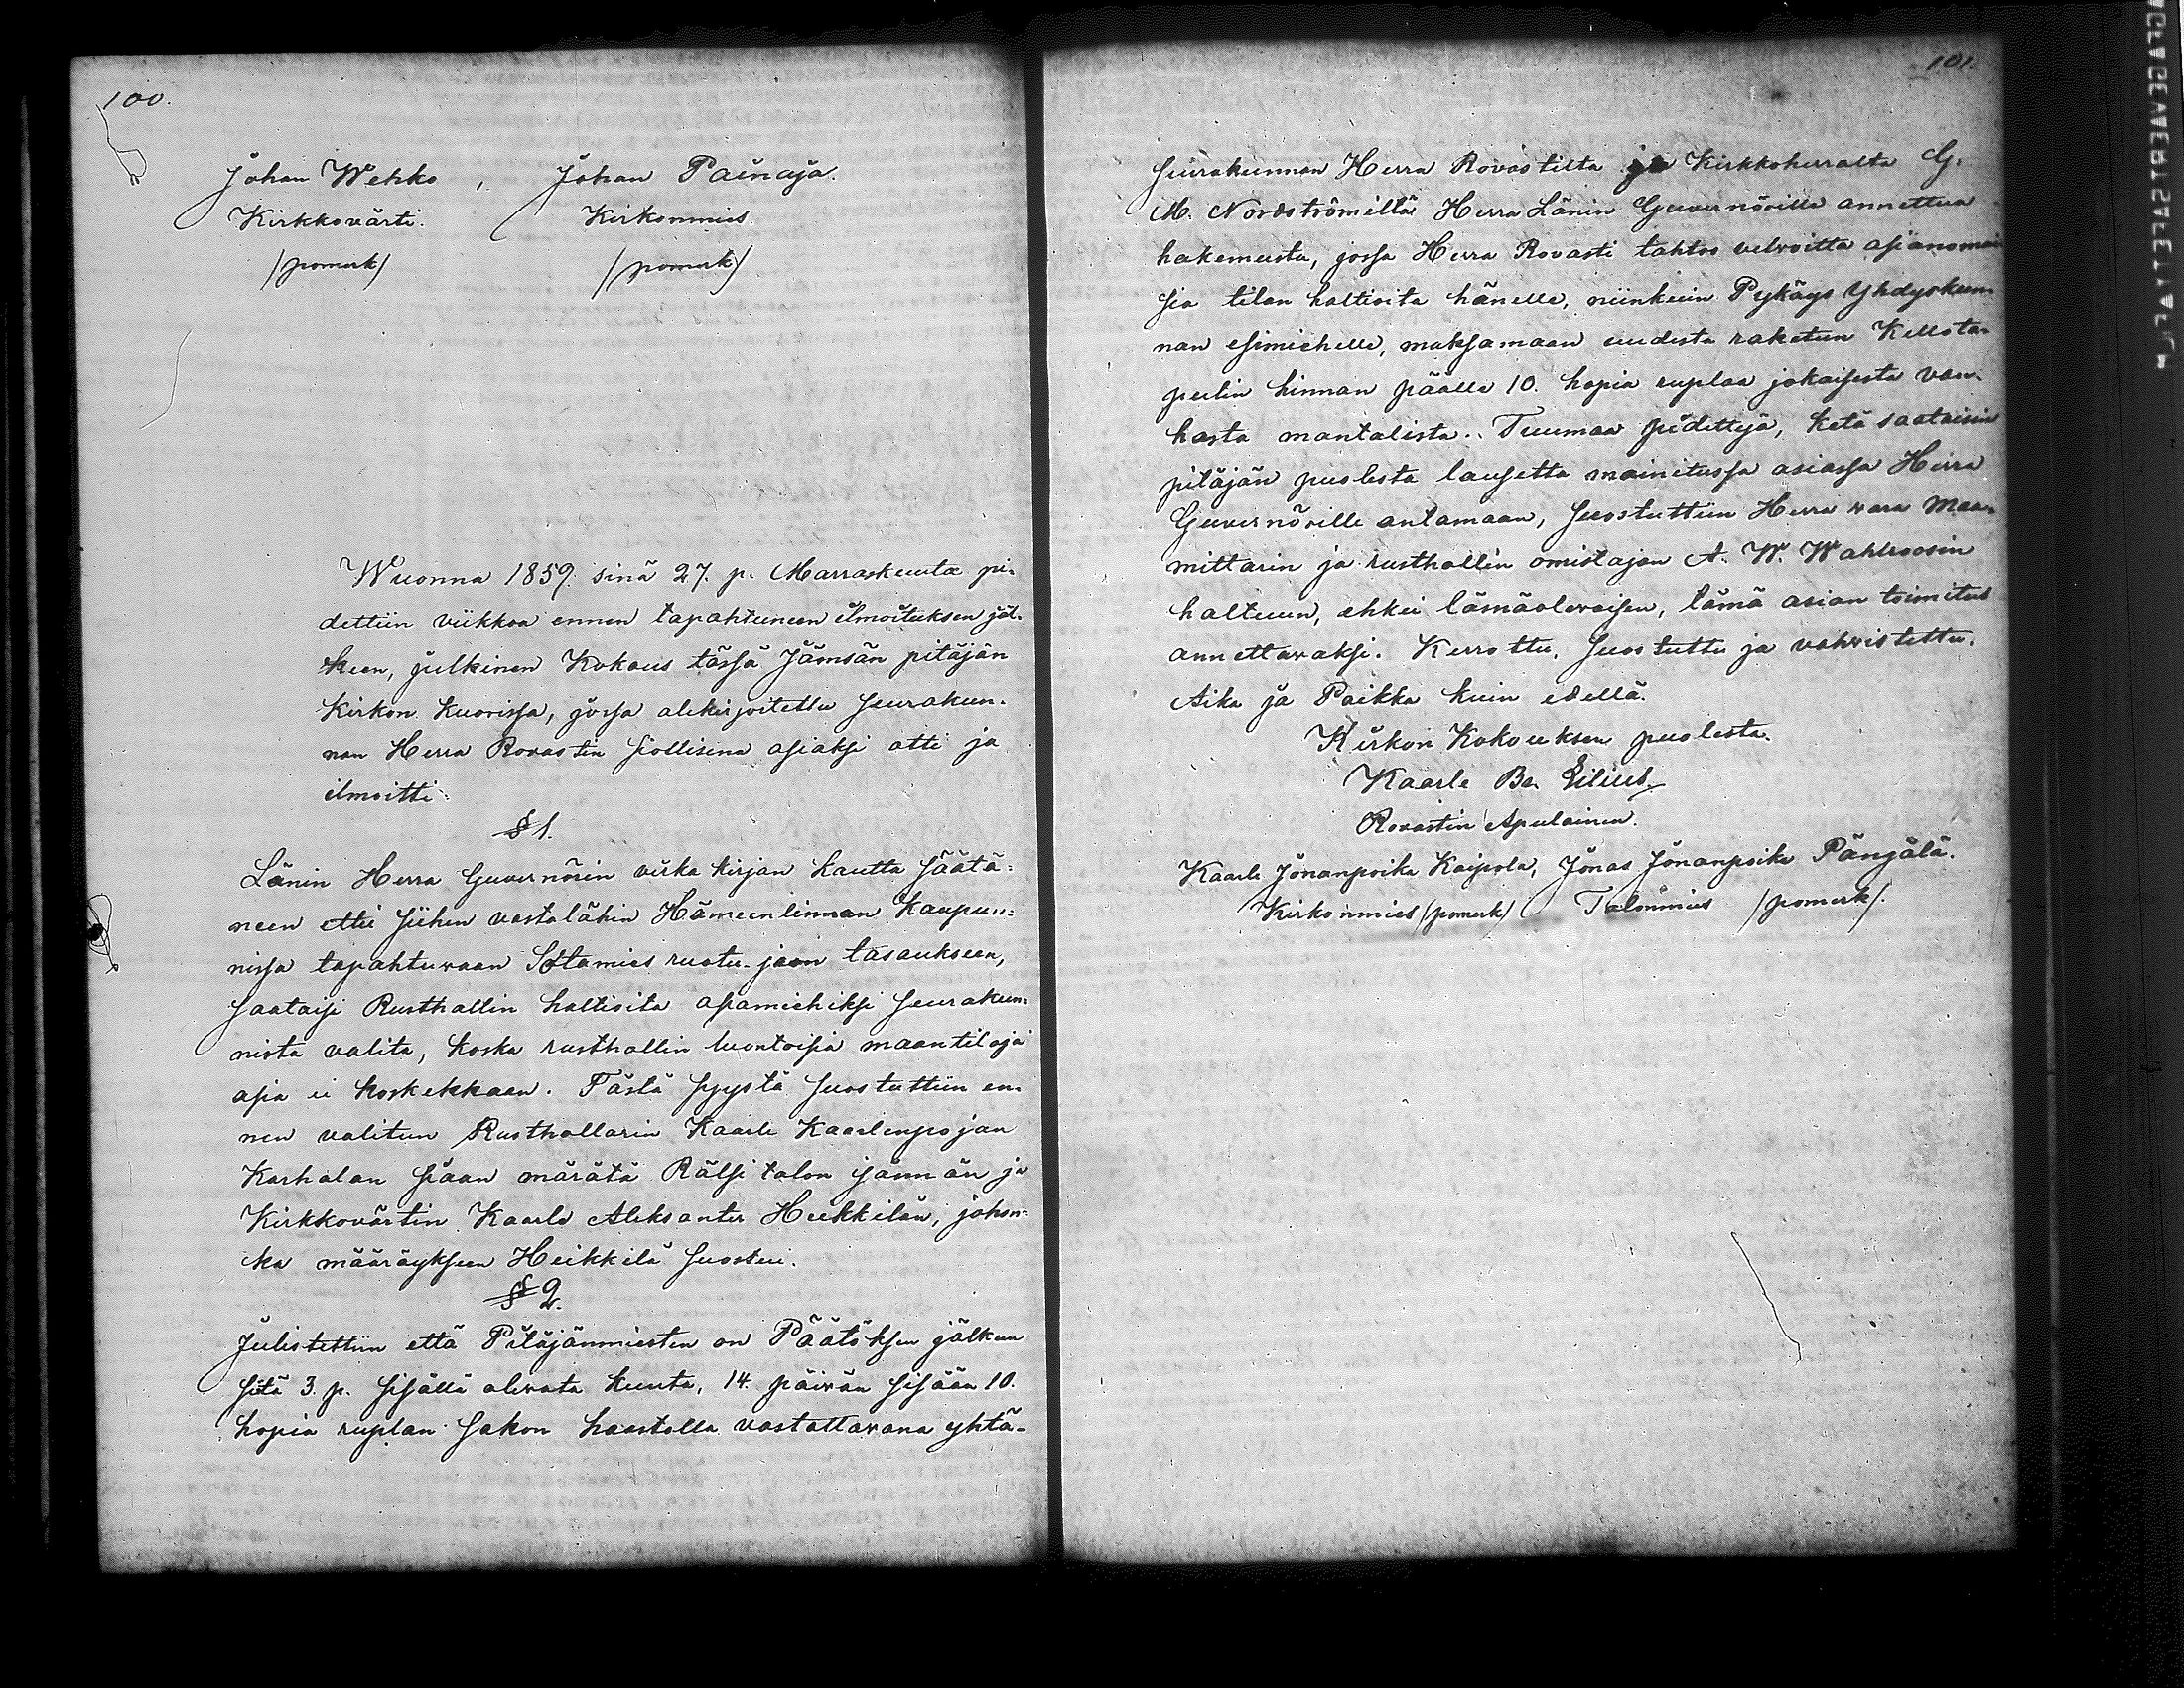 100.
Johan Wehko, Johan Painaja.
Kirkkovärti. Kirkonmies.
/pomerk/ /pomerk/
Wuonna 1859. sinä 27. p. Marraskuuta pi-
dettiin viikkoa ennen tapahtuneen ilmoituksen jäl-
keen, julkinen Kokous tässä Jämsän pitäjän
Kirkon Kuorissa, jossa alekirjoitettu seurakun-
nan Herra Rovastin siallisena asiaksi otti ja
ilmoitti:
§ 1.
Länin Herra Guvernörin virka kirjan kautta säätä-
neen ettei siihen vastalähin Hämeenlinnan Kaupun-
nissa tapahtuvaan Sotamies ruotu-jaon tasaukseen,
saataisi Rusthollin haltioita asiamiehiksi seurakun-
nista valita, koska rusthollin luontoisia maantiloja
asia ei koskekkaan. Tästä syystä suostuttiin en-
nen valitun Rusthollarin Kaarle Kaarlenpojan
Karhalan siaan märätä Rälsi talon isännän ja
Kirkkovärtin Kaarle Aleksanter Heikkilän, johon-
ka määräykseen Heikkilä suostui.
§ 2.
Julistettiin että Pitäjänmiesten on Päätöksen jälkeen
sitä 3. p. sisällä olevata kuuta, 14. päivän sisään 10.
hopia ruplan sakon haastolla vastattavana yhtä-
101.
seurakunnan Herra Rovastilta ja Kirkkoherralta G.
M. Nordströmillä Herra Länin Guvernörille annettua
hakemusta, jossa Herra Rovasti tahtoo velvoitta asianomai
sia tilan haltioita hänelle, niinkuin Pykäys Yhdyskun-
nan esimiehelle, maksamaan uudesta raketun Kellota-
pulin hinnan päälle 10. hopia ruplaa jokaisesta van-
hasta mantalista. Tuumaa pidettyä, ketä saataisiin
pitäjän puolesta lausetta mainitussa asiassa Herra
Guvernörille antamaan, suostuttiin Herra vara Maa-
mittarin ja rusthollin omistajan A. W. Wahlroosin
haltuun, ehkei läsnäolevaisen, tämä asian toimitus
annettavaksi. Kerrottu, suostuttu ja vahvistettu.
Aika ja Paikka kuin edellä.
Kirkon Kokouksen puolesta.
Kaarle Be. Silius.
Rovastin Apulainen.
Kaarle Jonanpoika Kaipola, Jonas Jonanpoika Pänjälä.
Kirkonmies /pomerk/ Talonmies /pomerk/.